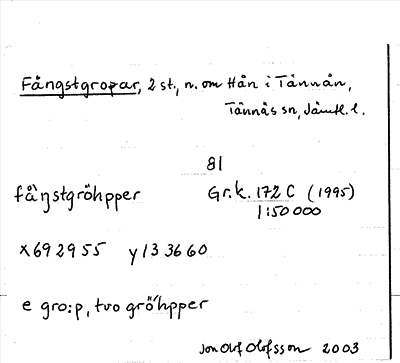 Fångstgropar, 2 st., n. om Hån i Tännån,
Tännäs sn, Jämtl. l.
81
fåŋstgröhpper Gr.k. 172 C (1995)
1:50 000
x692955 y133660
e gro:p, tvo gröhpper
Jon Olof Olofsson 2003